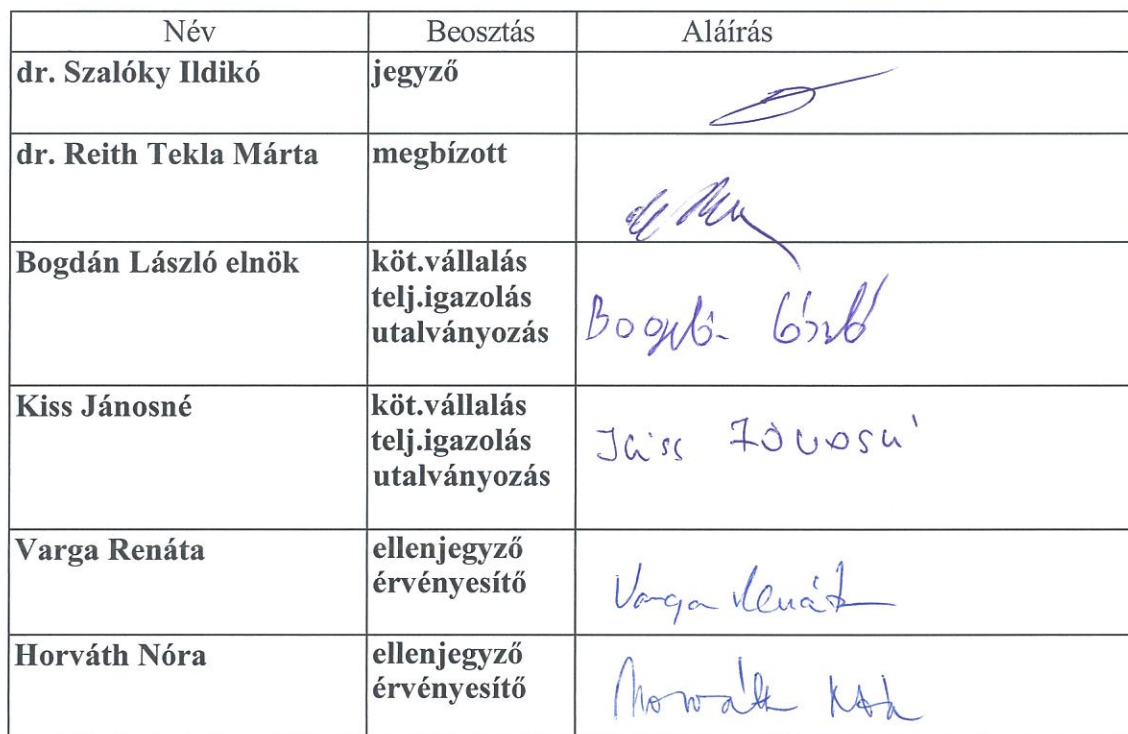 Név Beosztás Aláírás
dr. Szalóky Ildikó jegyző
dr. Reith Tekla Márta megbízott
Bogdán László elnök köt.vállalás
telj.igazolás
utalványozás
Bogdán László
Kiss Jánosné köt.vállalás
telj.igazolás
utalványozás
Kiss Jánosné
Varga Renáta ellenjegyző
érvényesítő
Varga Renáta
Horváth Nóra ellenjegyző
érvényesítő
Horváth Nóra